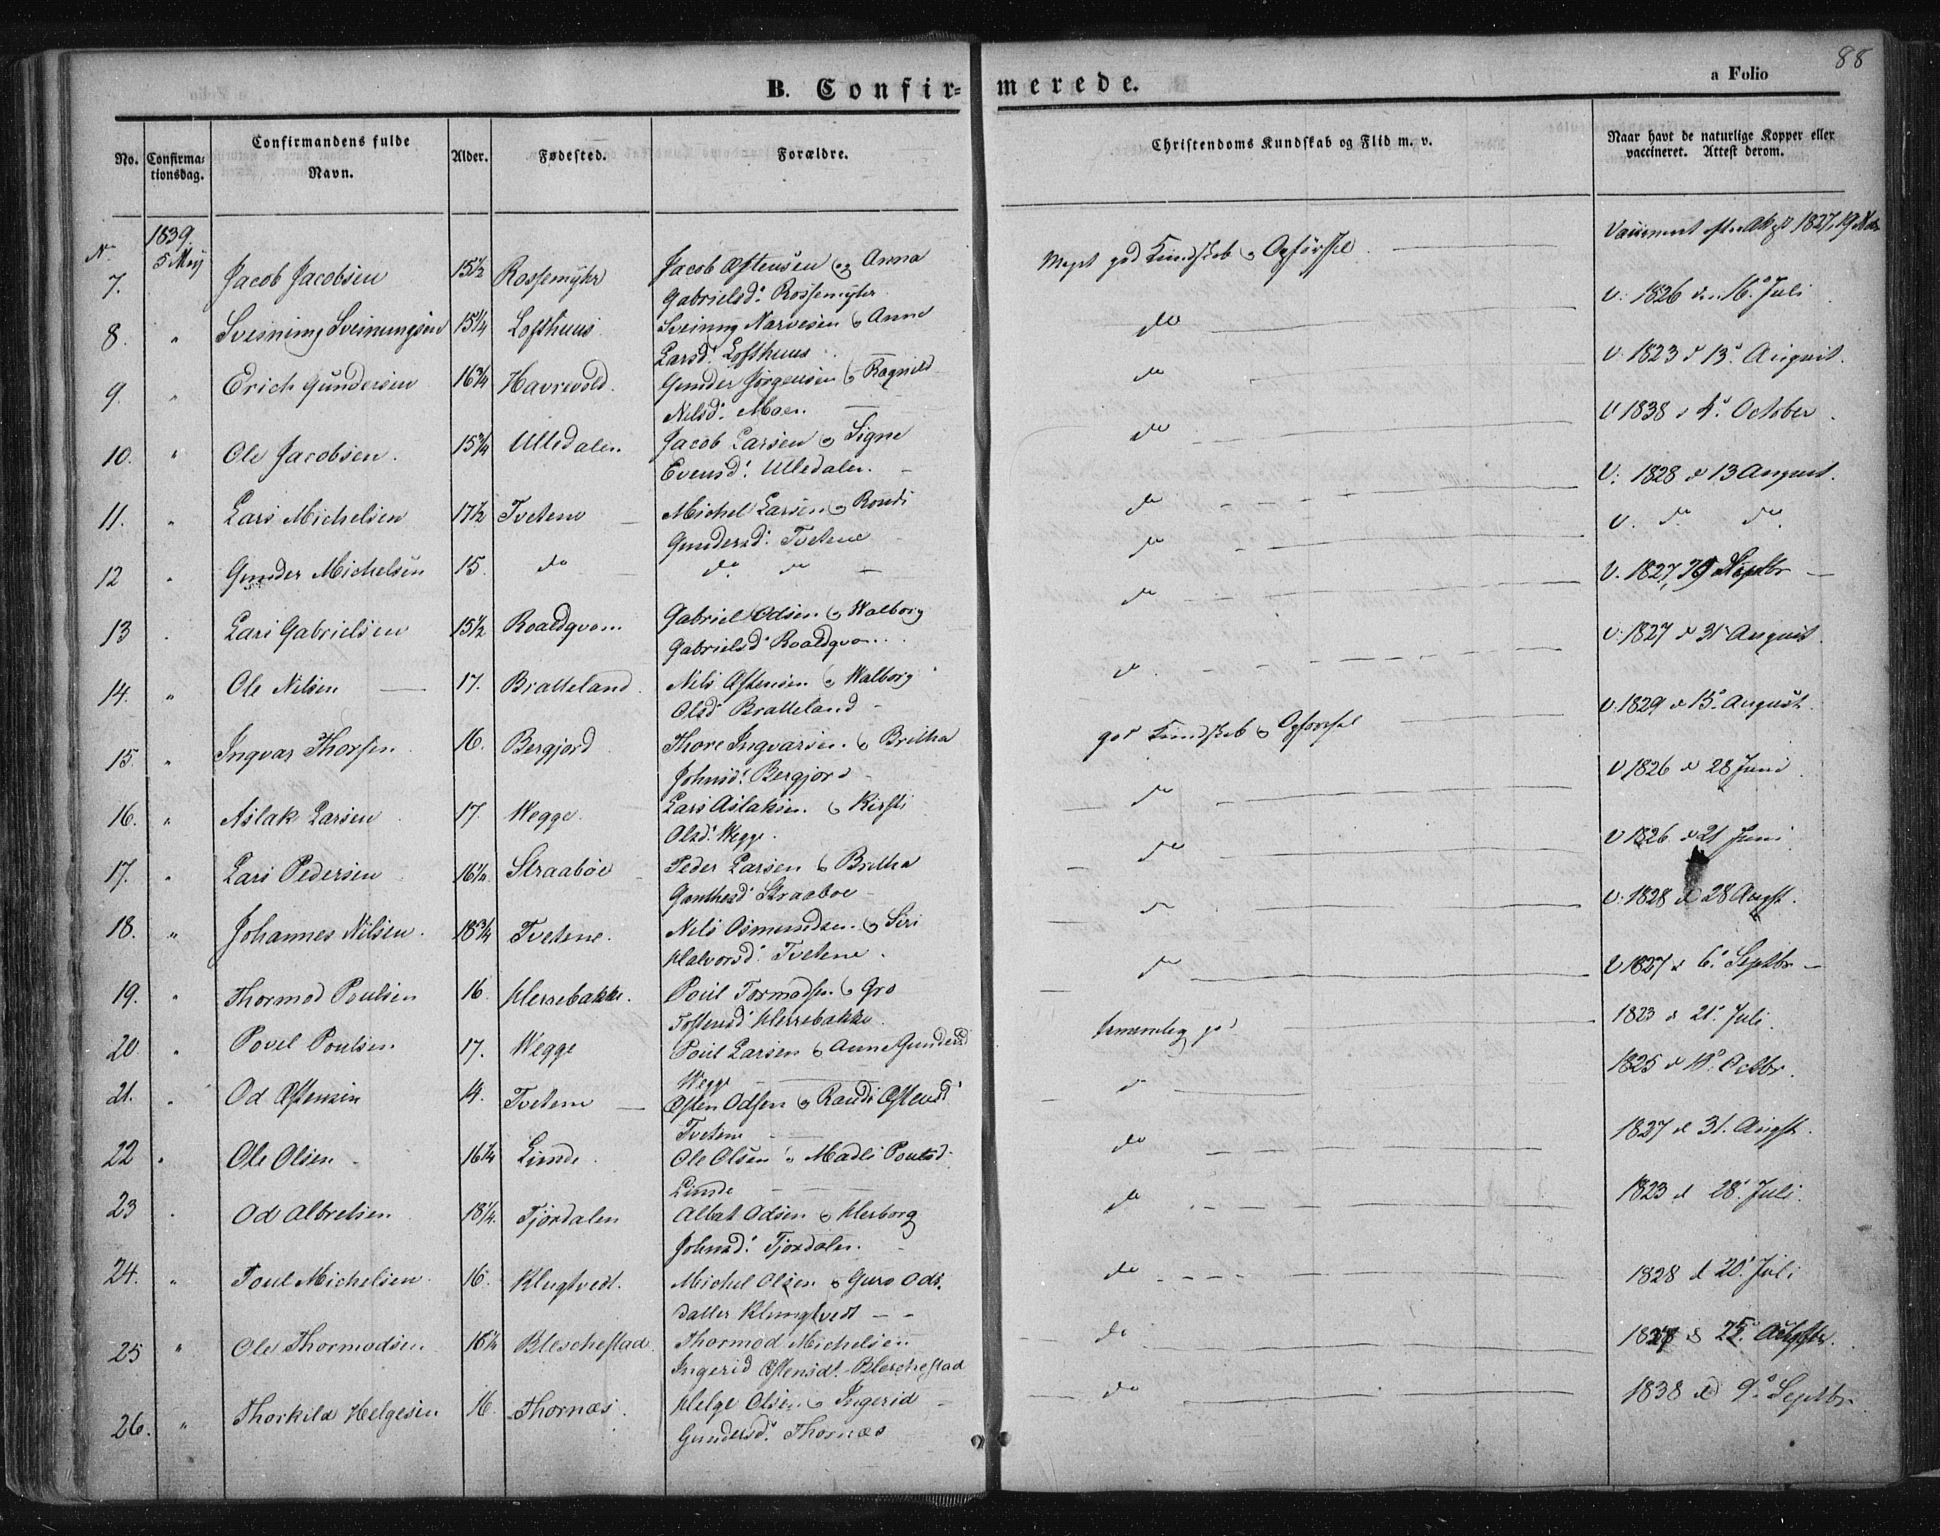 88
B. Confir- merede.
a Folio
No. Confirma-tionsdag. Confirmandens fulde Navn. Alder. Fødested. Forældre. Christendoms Kundskab og Flid m. v. Naar havt de naturlige Kopper eller vaccineret. Attest derom.
N. 1839.
7. 5 Maij Jacob Jacobsen 15½ Rossemyhr Jacob Østensen og Anna Meget god Kundskab o Opførsel
Gabrielsd: Rossemyhr. V: 1826 den 16. Juli
8. " Sveining Sveinungsen 15¼ Lofthuus Sveining Narvesen o Anne do
Larsd: Lofthuus V: 1823 d 13. August.
9. " Erich Gundersen 16¾ Havrevold Gunder Jørgensen o Ragnild do
Nilsd: Moen. V 1838 d 4. October
10. " Ole Jacobsen. 15¾ Ulledalen Jacob Larsen o Signe do
Evensd: Ulledalen. V: 1828 d 13 August.
11. " Lars Michelsen 17½ Tvetene Michel Larsen o Randi do
Gundersd: Tvetene V. do do
12 " Gunder Michelsen 15. do do do do
V. 1827, Septbr
13 " Lars Gabrielsen 15½ Roaldqvam Gabriel Odsen o Walborg do
Gabrielsd: Roaldqvam. V: 1827 d 31 August.
14. " Ole Nilsen 17. Bratteland Nils Østensen o Walborg do
Olsd: Bratteland V: 1829 d 15. August.
15. " Ingvar Thorsen 16. Bergjord Thore Ingvarsen. o Britha god Kundskab o Opførsel
Johnsd: Bergjord V 1826 d 28 Juni
16. " Aslak Larsen 17. Wegge Lars Aslaksen o Kirsti do
Olsd: Wegge. V 1826 d 21 Juni
17. " Lars Pedersen 16¼ Straabøe Peder Larsen o Britha do
Straaboe V: 1828 d 28 Augst.
18. " Johannes Nilsen. 18¾ Tvetene. Nils Osmundsen. o Siri do
Halvorsd: Tvetene. V 1827 d 6. Septbr
19. " Thormod Poulsen 16. Herrebakke. Poul Tormodsen o Gro do
Herrebakke. 1823 d 21. Juli.
20 " Povel Poulsen 17. Wegge Poul Larsen o Anne Gundersd temmelig god
Wegge 1825 d Octbr.
21. " Od Østensen Tvetene Østen Odsen o Randi Østensd: do
Tvetene 1827 d 31. Augst.
22 " Ole Olsen 16¼ Linde Ole Olsen o Madli Poulsd. do
Linde 1823 d 28. Juli.
23 " Od Albretsen 18¼ Tjørdalen Odsen o Herborg do
Johnsd: Tjørdalen. 1828 d 20. Juli
24. " Poul Michelsen 16. Klugtvedt. Michel Olsen o Guro Ods. do
datter Klungtvedt
25 " Ole Thormodsen 16¼ Bleschestad Thormod Michelsen do
Ingerid Østensdt. Bleschestad
26. " Thorkild Helgesen 16. Thornæs. Helge Olsen o Ingerid do 1838 d 9. Septbr.
Gundersd: Thornæs